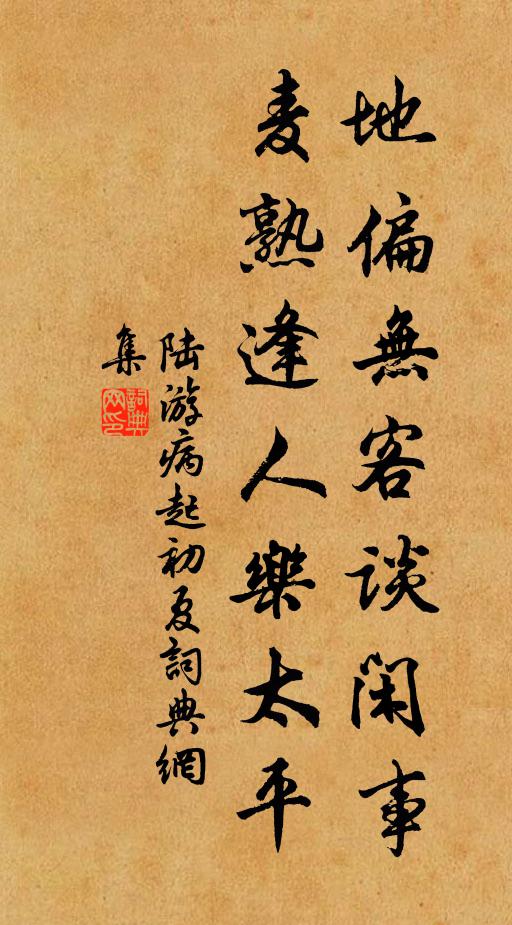 地偏無客談閑事
麦熟逢人樂太平
陆游病起初夏詞典網
集
詞典
网印